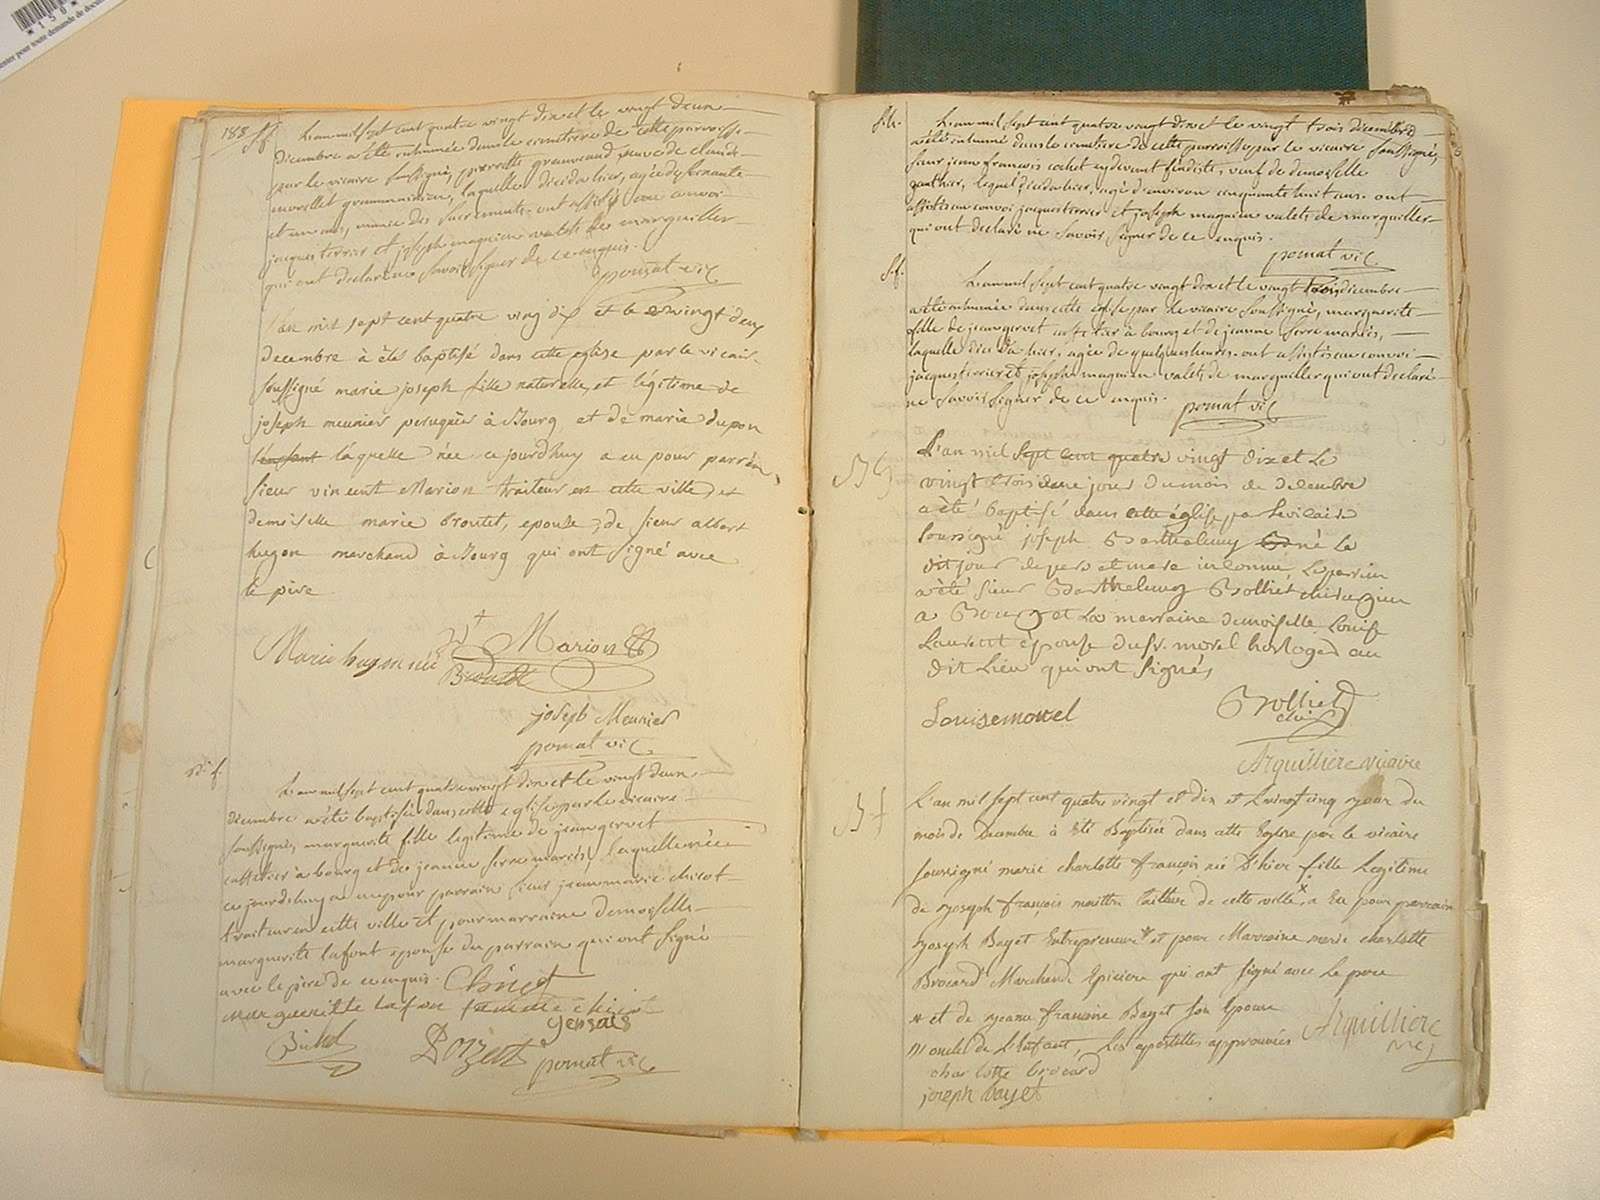 188
S f
L'an mil sept cent quatre vingt dix et le vingt deux
décembre a été inhumée dans le cimetière de cette paroisse
par le vicaire soussigné, pierrette veuve de claude
morellet laquelle décéda hier, agée de soixante
et un ans, munie des sacrements. ont assisté au convoi
jacques terrier et joseph magnien valets de marguiller
qui ont déclaré ne savoir signer de ce enquis.
pomat vic
L'an mil sept cent quatre ving dix et le vingt deux
decembre à été baptisé dans cette eglise par le vicair
soussigné marie joseph fille naturelle, et légitime de
joseph meunier peruquier à Bourg, et de marie dupon
l'enfant laquelle née ce jourdhuy a eu pour parrein
sieur vincent Marion traiteur en cette ville, et
demoiselle marie broutet, epouse, de sieur albert
hugon marchand à Bourg qui ont signé avec
le pire
Marion
Marie hugon née
Broutet
joseph Meunier
pomat vic
L'an mil sept cent quatre vingt dix et le vingt deux
décembre a été baptisée dans cette eglise par le vicaire
soussigné, marguerite fille legitime de jean gervet
cafetier à bourg et de jeanne serre mariés, laquelle née
ce jourdhuy a eu pour parrain sieur jean marie chicot
traiteur en cette ville et pour marraine demoiselle
marguerite lafont epouse du parrain qui ont signé
avec le pire de ce enquis. Chicot
marguerite lafon famme chicot
gervais
pomat vic
S. h.
L'an mil sept cent quatre vingt dix et le vingt trois décembre
a été inhumé dans le cimetière de cette paroisse par le vicaire soussigné,
sieur jean françois cochet cydevant feudiste, veuf de demoiselle
gauthier, lequel décéda hier, agé d'environ cinquante huit ans. ont
assisté au convoi jacques terrier et joseph magnien valets de marguiller,
qui ont declaré ne savoir signer de ce enquis.
pomat vic
S. f.
L'an mil sept cent quatre vingt dix et le vingt trois décembre
a été inhumée dans cette eglise par le vicaire soussigné, marguerite
fille de jean gervet cafetier à bourg et de jeanne serre mariés,
laquelle décéda hier, agée de quelques heures. ont assisté au convoi
jacques terrier et joseph magnien valets de marguiller qui ont declaré
ne savoir signer de ce enquis.
pomat vic
L'an mil sept cent quatre vingt dix et le
vingt trois jour du mois de decembre
a été baptisé dans cette église par le vicaire
soussigné joseph Barthelemy né le
dit jour de pere et mere inconnu Le parrin
a été sieur Barthelemy Bolliet chirurgien
a Bourg et La marraine demoiselle Louise
Laurent épouse du sr. morel horloger au
dit Lieu qui ont signés
Louise morel
Bolliet
chir
Arquilliere vicaire
L'an mil sept cent quatre vingt et dix et le vingt cinq jour du
mois de decembre à Eté Baptisée dans cette Eglise par le vicaire
soussigné marie charlotte françois née D'hier fille Legitime
de joseph françois maitre tailleur de cette ville, a Eu pour parrain
joseph Bayet Entrepreneur et pour Marraine marie charlotte
Brocard Marchande Epiciere qui ont signé avec le pere
et de jeanne francoise Bayet son Epouse
oncle de L'Enfant, les apostilles approuvées
Arquilliere
vic
charlotte brocard
joseph bayet